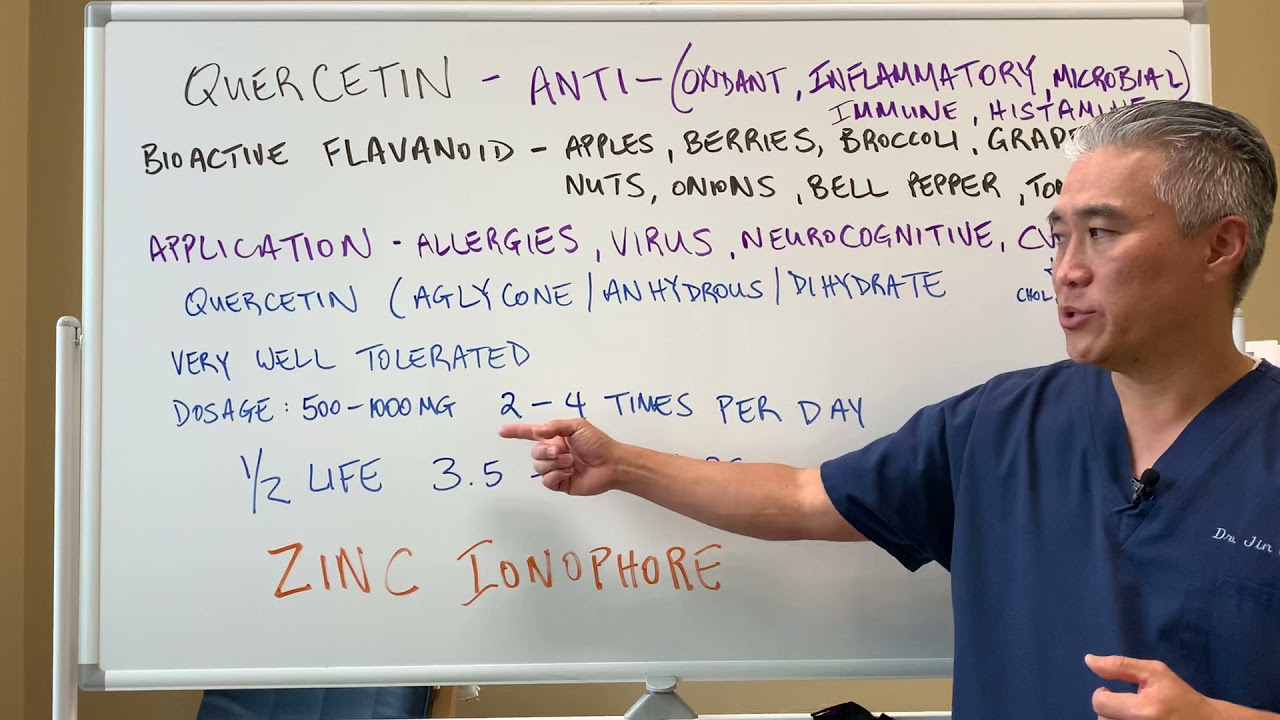 QUERCETIN - ANTI-(OXIDANT, INFLAMMATORY, MICROBIAL)
IMMUNE, HISTAMINE
BIOACTIVE FLAVANOID - APPLES, BERRIES, BROCCOLI, GRAPE
NUTS, ONIONS, BELL PEPPER, TOM
APPLICATION - ALLERGIES, VIRUS, NEUROCOGNITIVE, CV
QUERCETIN (AGLYCONE/ANHYDROUS/DIHYDRATE
CHOL
VERY WELL TOLERATED
DOSAGE: 500-1000MG 2-4 TIMES PER DAY
1/2 LIFE 3.5 -
ZINC IONOPHORE
Dr. Jin